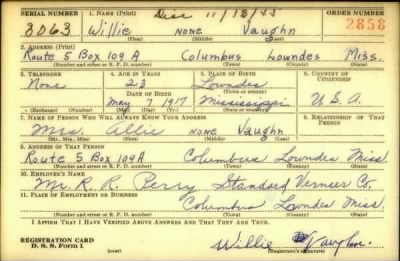 SERIAL NUMBER 1. NAME (Print) Dec 11/13/45 ORDER NUMBER
8063 Willie none Vaughn 2858
(First) (Middle) (Last)
2. ADDRESS (Print)
Route 5 Box 109A Columbus Lowndes Miss.
(Number and street or R. F. D. number) (Town) (County) (State)
3. TELEPHONE 4. AGE IN YEARS 5. PLACE OF BIRTH 6. COUNTRY OF CITIZENSHIP
None 23 Lowndes
DATE OF BIRTH (Town or county)
May 7 1917 Mississippi U.S.A.
(Exchange) (Number) (Mo.) (Day) (Yr.) (State or country)
7. NAME OF PERSON WHO WILL ALWAYS KNOW YOUR ADDRESS 8. RELATIONSHIP OF THAT PERSON
Mrs. Allie none Vaughn
(Mr., Mrs., Miss) (First) (Middle) (Last)
9. ADDRESS OF THAT PERSON
Route 5 Box 109A Columbus Lowndes Miss.
(Number and street or R. F. D. number) (Town) (County) (State)
10. EMPLOYER'S NAME
M. R. R. Perry Standard Verneer Co.
11. PLACE OF EMPLOYMENT OR BUSINESS
Columbus Lowndes Miss.
(Number and street or R. F. D. number) (Town) (County) (State)
I AFFIRM THAT I HAVE VERIFIED ABOVE ANSWERS AND THAT THEY ARE TRUE.
REGISTRATION CARD
D. S. S. Form 1 (over) Willie Vaughn
(Registrant's signature)